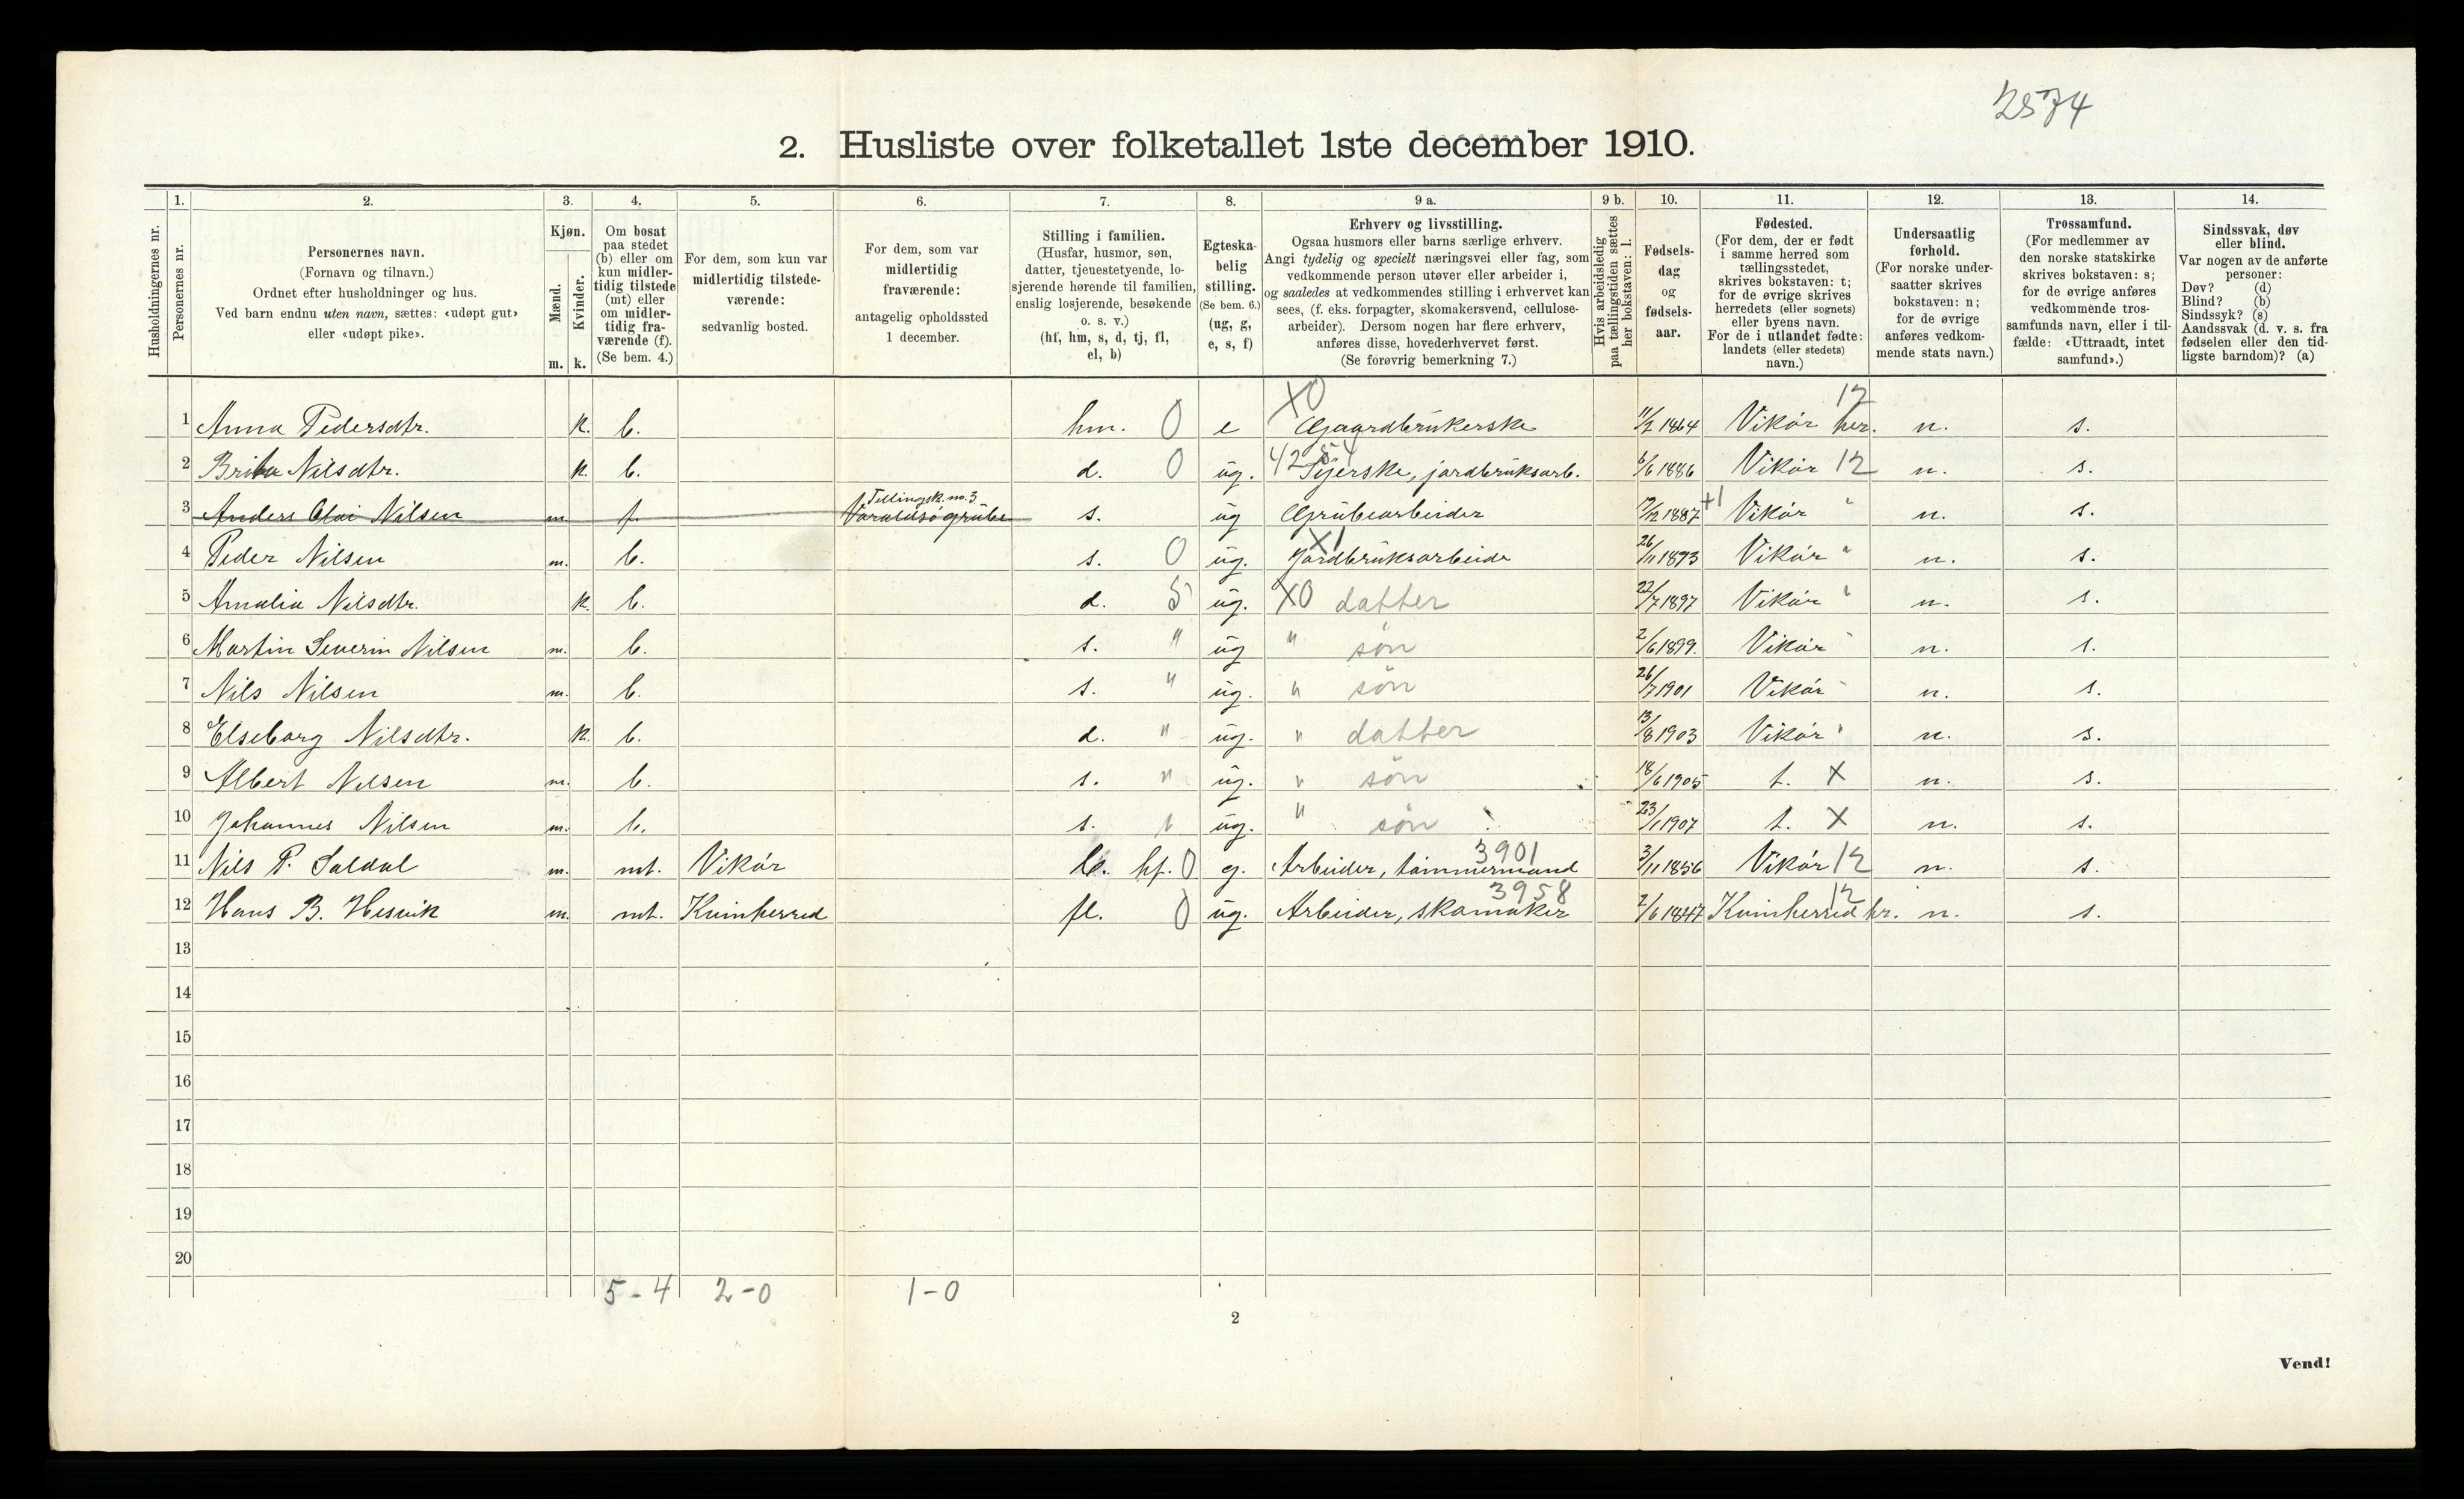 2574
2. Husliste over folketallet 1ste december 1910.
Husholdningernes nr.
1. Personernes nr.
2. Personernes navn.
(Fornavn og tilnavn.)
Ordnet efter husholdninger og hus.
Ved barn endnu uten navn, sættes: «udøpt gut»
eller «udøpt pike».
3. Kjøn.
Mænd. m.
Kvinder. k.
4. Om bosat
paa stedet
(b) eller om
kun midler-
tidig tilstede
(mt) eller
om midler-
tidig fra-
værende (f).
(Se bem. 4.)
5. For dem, som kun var
midlertidig tilstede-
værende:
sedvanlig bosted.
6. For dem, som var
midlertidig
fraværende:
antagelig opholdssted
1 december.
7. Stilling i familien.
(Husfar, husmor, søn,
datter, tjenestetyende, lo-
sjerende hørende til familien,
enslig losjerende, besøkende
o. s. v.)
(hf, hm, s, d, tj, fl,
el, b)
8. Egteska-
belig
stilling.
(Se bem. 6.)
(ug, g,
e, s, f)
9 a. Erhverv og livsstilling.
Ogsaa husmors eller barns særlige erhverv.
Angi tydelig og specielt næringsvei eller fag, som
vedkommende person utøver eller arbeider i,
og saaledes at vedkommendes stilling i erhvervet kan
sees, (f. eks. forpagter, skomakersvend, cellulose-
arbeider). Dersom nogen har flere erhverv,
anføres disse, hovederhvervet først.
(Se forøvrig bemerkning 7.)
9 b. Hvis arbeidsledig
paa tællingstiden sættes
her bokstaven: l.
10. Fødsels-
dag
og
fødsels-
aar.
11. Fødested.
(For dem, der er født
i samme herred som
tællingsstedet,
skrives bokstaven: t;
for de øvrige skrives
herredets (eller sognets)
eller byens navn.
For de i utlandet fødte:
landets (eller stedets)
navn.)
12. Undersaatlig
forhold.
(For norske under-
saatter skrives
bokstaven: n;
for de øvrige
anføres vedkom-
mende stats navn.)
13. Trossamfund.
(For medlemmer av
den norske statskirke
skrives bokstaven: s;
for de øvrige anføres
vedkommende tros-
samfunds navn, eller i til-
fælde: «Uttraadt, intet
samfund».)
14. Sindssvak, døv
eller blind.
Var nogen av de anførte
personer:
Døv? (d)
Blind? (b)
Sindssyk? (s)
Aandssvak (d. v. s. fra
fødselen eller den tid-
ligste barndom)? (a)
1 Anna Pedersdtr. k. b. hm. 0 e X0 Gaardbrukerske 11/2 1864 Vikør her. 12 n. s.
2 Brita Nilsdtr. k. b. d. 0 ug. 42 Syerske, jordbruksarb. 6/6 1886 Vikør 12 n. s.
3 Anders Olai Nilsen m. f. Tellingsk. no. 3 Varaldsø grube s. ug Grubearbeider 17/12 1887 +1 Vikør " n. s.
4 Peder Nilsen m. b. s. 0 ug. X1 Jordbruksarbeide 26/11 1893 Vikør " n. s.
5 Amalia Nilsdtr. k. b. d. 5 ug. X0 datter 22/7 1897 Vikør " n. s.
6 Martin Severin Nilsen m. b. s. " ug " søn 2/6 1899. Vikør " n. s.
7 Nils Nilsen m. b. s. " ug. " søn 26/7 1901 Vikør " n. s.
8 Elseborg Nilsdtr. k. b. d. " ug. " datter 13/8 1903 Vikør " n. s.
9 Albert Nilsen m. b. s. " ug. " søn 18/6 1905 t. X n. s.
10 Johannes Nilsen m. b. s. " ug. " søn 23/1 1907 t. X n. s.
11 Nils P. Soldal m. mt. Vikør b. hf. 0 g. Arbeider, tømmermand 3901 3/11 1856 Vikør 12 n. s.
12 Hans B. Hesvik m. mt. Kvinherred fl. 0 ug. Arbeider, skomaker 3958 2/6 1847 Kvinherred hr. 12 n. s.
13
14
15
16
17
18
19
20
5 - 4 2 - 0 1 - 0
2
Vend!